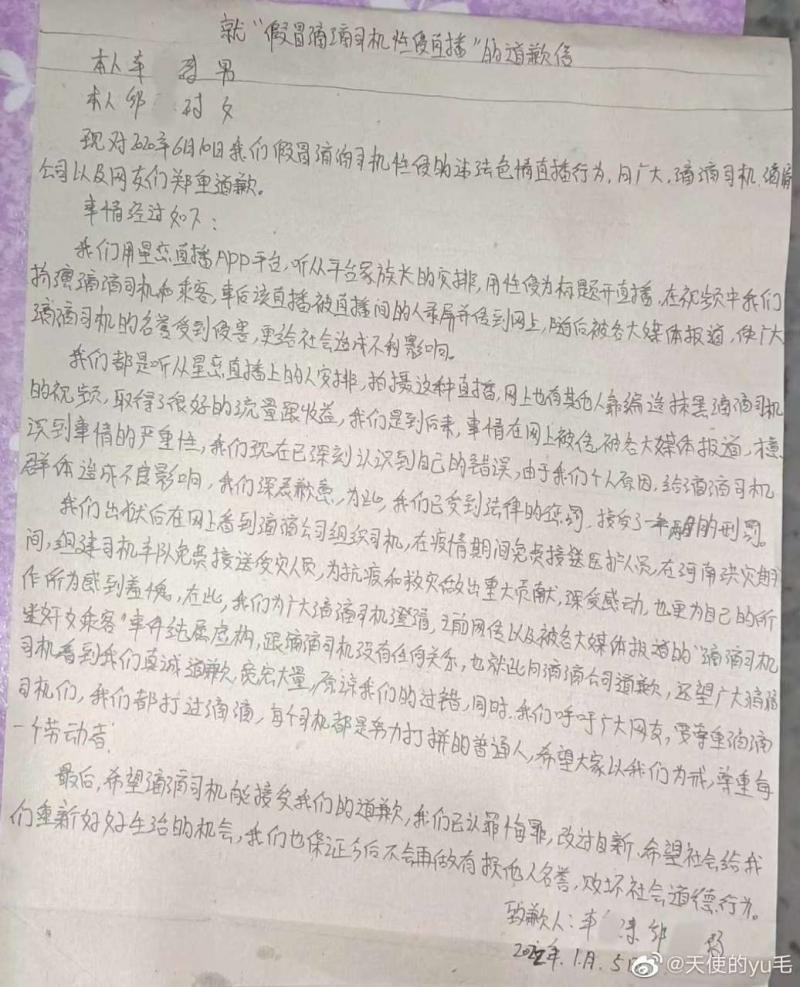 就“假冒滴滴司机性侵直播”的道歉信
本人车 男
本人邹 女
现对2020年6月10日我们假冒滴滴司机性侵的违法色情直播行为,向广大,滴滴司机、滴滴
公司以及网友们郑重道歉。
事情经过如下:
我们用星恋直播APP平台,听从平台家族长的安排,用性侵为标题开直播,在视频中我们
扮演滴滴司机和乘客,事后该直播被直播间的人录屏并传到网上,随后被各大媒体报道,使广大
滴滴司机的名誉受到侵害,更给社会造成不利影响。
我们都是听从星恋直播上的人安排,拍摄这种直播,网上也有其他人靠编造抹黑滴滴司机
的视频,取得了很好的流量跟收益,我们是到后来,事情在网上被传,被各大媒体报道,才意
识到事情的严重性,我们现在已深刻认识到自己的错误,由于我们个人原因,给滴滴司机
群体造成不良影响,我们深表歉意,为此,我们已受到法律的惩罚,接受了一年 的刑罚。
我们出狱后在网上看到滴滴公司组织司机,在疫情期间免费接送医护人员,在河南洪灾期
间,组建司机车队免费接送受灾人员,为抗疫和救灾做出重大贡献,深受感动,也更为自己的所
作所为感到羞愧,在此,我们为广大滴滴司机澄清,之前网传以及被各大媒体报道的“滴滴司机
迷奸女乘客”事件纯属虚构,跟滴滴司机没有任何关系,也就此向滴滴公司道歉,还望广大滴滴
司机看到我们真诚道歉,宽宏大量,原谅我们的过错,同时,我们呼吁广大网友,要尊重滴滴
司机们,我们都打过滴滴,每个司机都是努力打拼的普通人,希望大家以我们为戒,尊重每
一个劳动者!
最后,希望滴滴司机能接受我们的道歉,我们已认罪悔罪,改过自新,希望社会给我
们重新好好生活的机会,我们也保证今后不会再做有损他人名誉,败坏社会道德行为。
致歉人:车 邹
2022年.1月.5日
@天使的yu毛